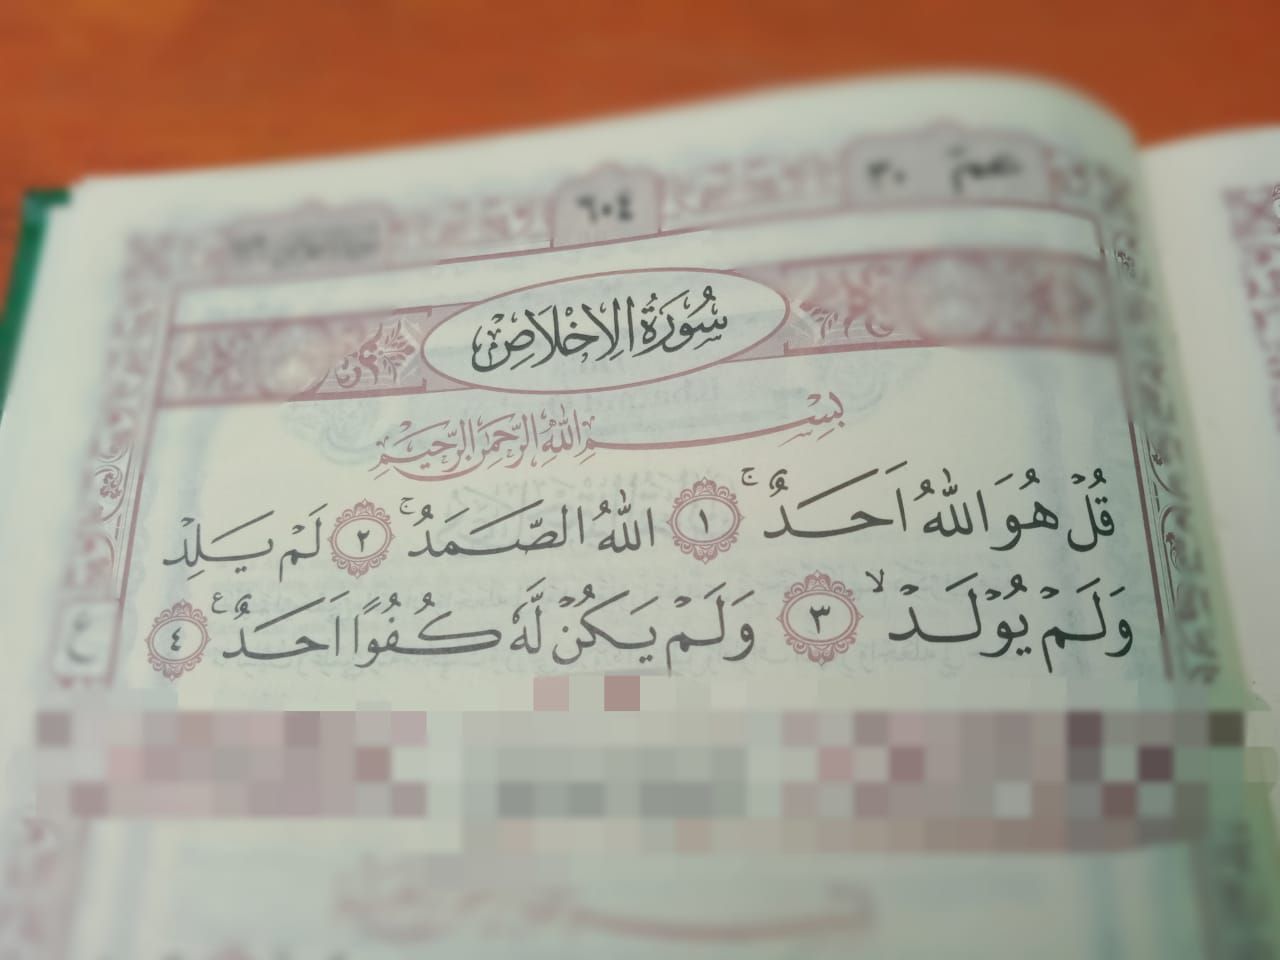 عمّ ٣٠
٦٠٤
سُوْرَةُ الْاِخْلَاصِ
بِسْمِ اللّٰهِ الرَّحْمٰنِ الرَّحِيْمِ
قُلْ هُوَ اللّٰهُ اَحَدٌۚ ١ اَللّٰهُ الصَّمَدُۚ ٢ لَمْ يَلِدْ
وَلَمْ يُوْلَدْۙ ٣ وَلَمْ يَكُنْ لَّهٗ كُفُوًا اَحَدٌࣖ ٤